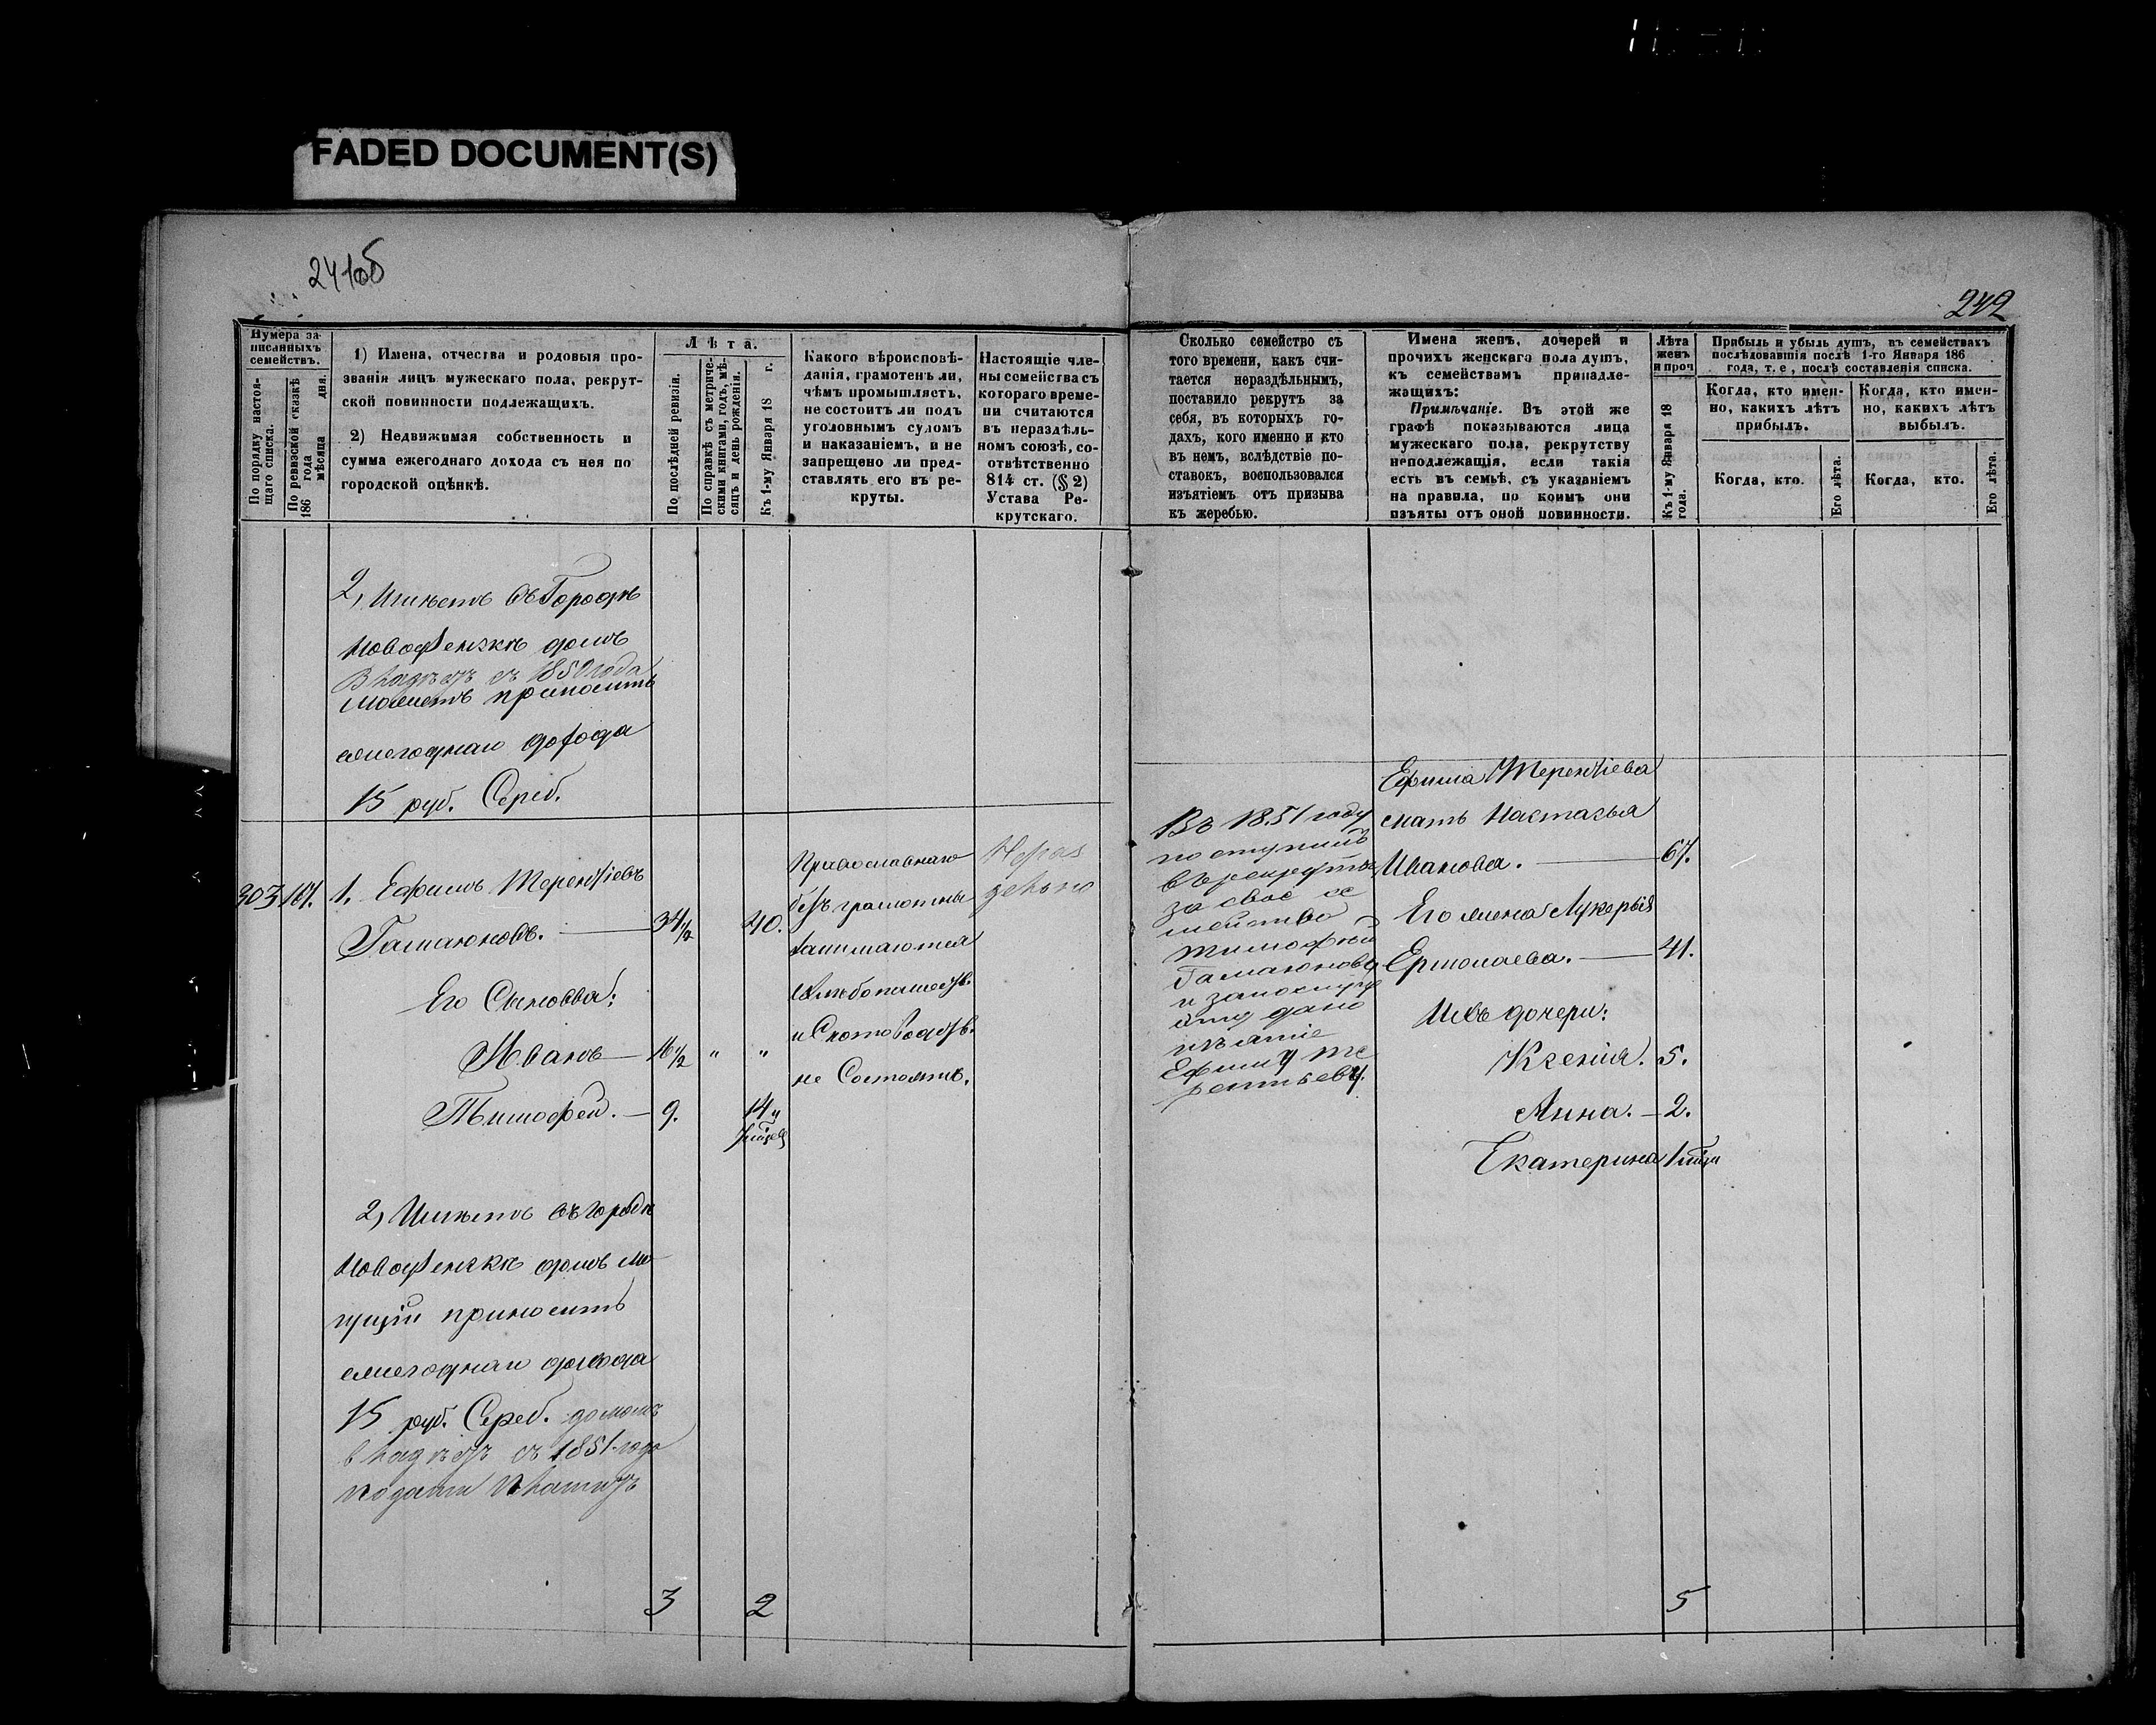 FADED DOCUMENT(S)
241об
242
Нумера за-
писанныхъ
семействъ.
По порядку настоя-
щаго списка.
По ревизской сказкѣ
186 года мѣсяца дня.
1) Имена, отчества и родовыя про-
званія лицъ мужескаго пола, рекрут-
ской повинности подлежащихъ.
2) Недвижимая собственность и
сумма ежегоднаго дохода съ нея по
городской оцѣнкѣ.
Лѣта.
По послѣдней ревизіи.
По справкѣ съ метриче-
скими книгами, годъ, мѣ-
сяцъ и день рожденія.
Къ 1-му Января 18 г.
Какого вѣроисповѣ-
данія, грамотенъ ли,
чѣмъ промышляетъ,
не состоитъ ли подъ
уголовнымъ судомъ
и наказаніемъ, и не
запрещено ли пред-
ставлять его въ ре-
круты.
Настоящіе чле-
ны семейства съ
котораго време-
ни считаются
въ нераздѣль-
номъ союзѣ, со-
отвѣтственно
814 ст. (§ 2)
Устава Ре-
крутскаго.
Сколько семейство съ
того времени, какъ счи-
тается нераздѣльнымъ,
поставило рекрутъ за
себя, въ которыхъ го-
дахъ, кого именно и кто
въ немъ, вслѣдствіе по-
ставокъ, воспользовался
изъятіемъ отъ призыва
къ жеребью.
Имена женъ, дочерей и
прочихъ женскаго пола душъ,
къ семействамъ принадле-
жащихъ:
Примѣчаніе. Въ этой же
графѣ показываются лица
мужескаго пола, рекрутству
неподлежащія, если такія
есть въ семьѣ, съ указаніемъ
на правила, по коимъ они
изъяты отъ оной повинности.
Лѣта
женъ
и проч
Къ 1-му Января 18
года.
Прибыль и убыль душъ, въ семействахъ
послѣдовавшія послѣ 1-го Января 186
года, т. е., послѣ составленія списка.
Когда, кто имен-
но, какихъ лѣтъ
прибылъ.
Когда, кто имен-
но, какихъ лѣтъ
выбылъ.
Когда, кто.
Его лѣта.
Когда, кто.
Его лѣта.
2, Имѣетъ въ Городѣ
Новоузенскѣ домъ
владѣетъ съ 1850 года
можетъ приносить
ежегоднаго дохода
15 руб. Сереб.
303 167. 1. Ефимъ Терентіевъ
Гамаюновъ. 34 1/2 40.
Его Сыновья:
Иванъ 16 1/2 " "
Тимофей. 9. 14
2, Имѣетъ въ городѣ
Новоузенскѣ домъ мо-
гущій приносить
ежегоднаго дохода
15 руб. Сереб. домомъ
владѣетъ съ 1851 года
подати платитъ
3 2
Православнаго
безъ грамотны
занимаются
хлѣбопашеств.
и Скотоводств.
не Состоятъ.
Нераз
дельно
Въ 1851 году
поступилъ
въ рекруты
за свое се
мейство
Тимофей
Гамаюновъ
и
дано
изъятіе
Ефиму Те
рентьеву.
Ефима Терентіева
мать Настасья
Иванова. 67.
Его жена Лукерья
Ермолаева. 41.
Ихъ дочери:
Ксенія. 5.
Анна. 2.
Екатерина 1
5